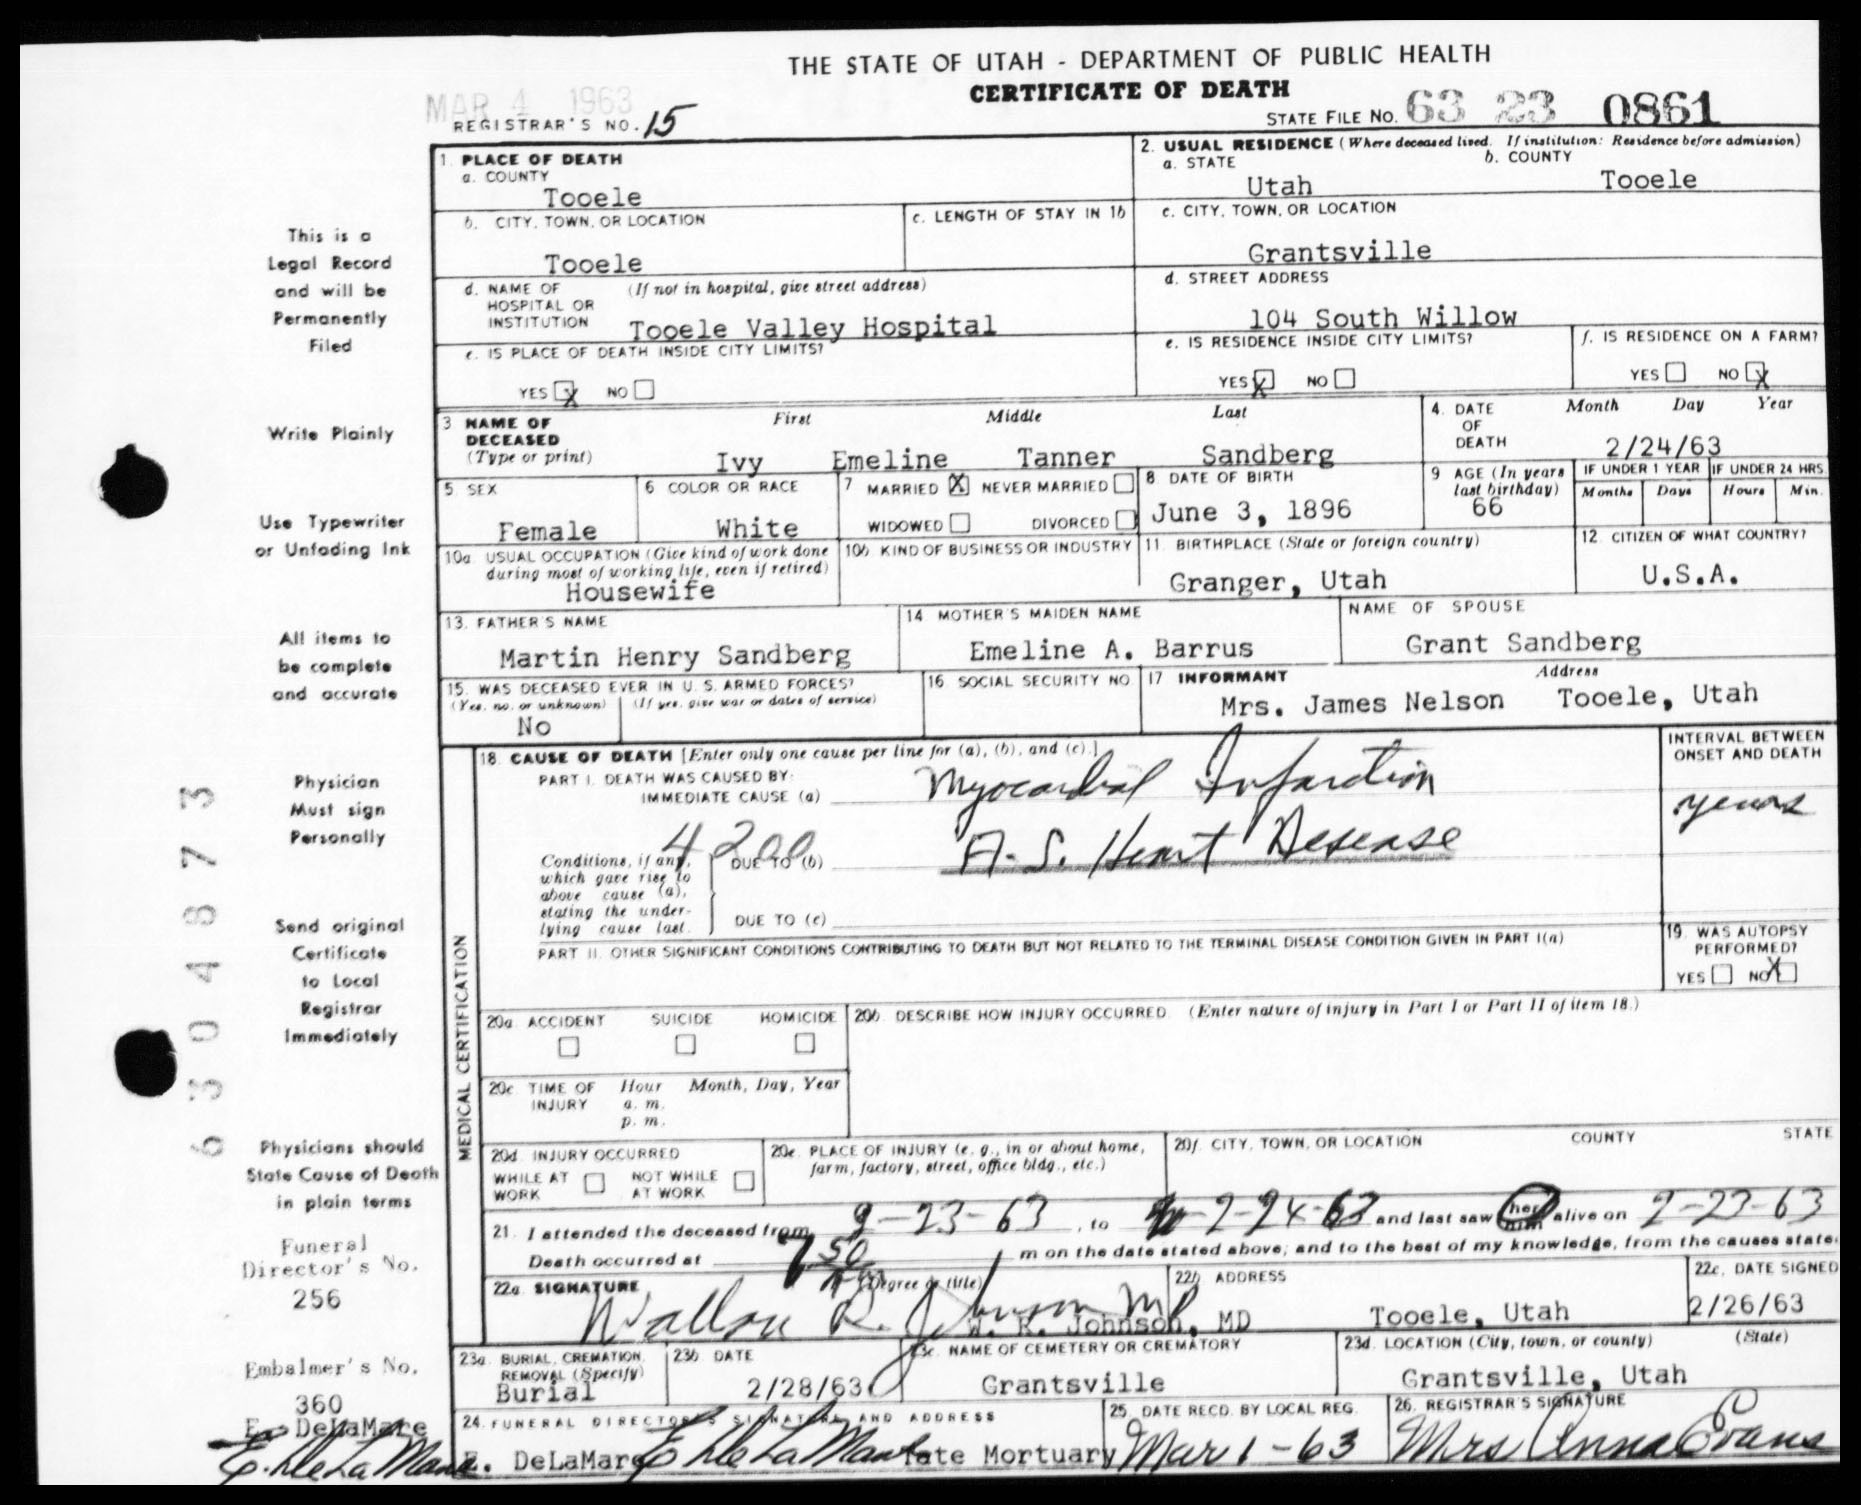 THE STATE OF UTAH - DEPARTMENT OF PUBLIC HEALTH
CERTIFICATE OF DEATH
MAR 4 1963
REGISTRAR'S NO. 15
STATE FILE NO. 63 23 0861
1. PLACE OF DEATH
a. COUNTY
Tooele
2. USUAL RESIDENCE (Where deceased lived. If institution: Residence before admission)
a. STATE b. COUNTY
Utah Tooele
b. CITY, TOWN, OR LOCATION
Tooele
c. LENGTH OF STAY IN 1b
c. CITY, TOWN, OR LOCATION
Grantsville
d. NAME OF (If not in hospital, give street address)
HOSPITAL OR
INSTITUTION Tooele Valley Hospital
d. STREET ADDRESS
104 South Willow
e. IS PLACE OF DEATH INSIDE CITY LIMITS?
YES X NO
e. IS RESIDENCE INSIDE CITY LIMITS?
YES X NO
f. IS RESIDENCE ON A FARM?
YES NO X
3 NAME OF
DECEASED
(Type or print)
First Middle Last
Ivy Emeline Tanner Sandberg
4. DATE
OF
DEATH
Month Day Year
2/24/63
5. SEX
Female
6 COLOR OR RACE
White
7 MARRIED X NEVER MARRIED
WIDOWED DIVORCED
8 DATE OF BIRTH
June 3, 1896
9 AGE (In years
last birthday)
66
IF UNDER 1 YEAR IF UNDER 24 HRS.
Months Days Hours Min.
10a USUAL OCCUPATION (Give kind of work done
during most of working life, even if retired)
Housewife
10b. KIND OF BUSINESS OR INDUSTRY
11. BIRTHPLACE (State or foreign country)
Granger, Utah
12. CITIZEN OF WHAT COUNTRY?
U.S.A.
13. FATHER'S NAME
Martin Henry Sandberg
14 MOTHER'S MAIDEN NAME
Emeline A. Barrus
NAME OF SPOUSE
Grant Sandberg
15. WAS DECEASED EVER IN U. S. ARMED FORCES?
(Yes, no, or unknown) (If yes, give war or dates of service)
No
16. SOCIAL SECURITY NO
17 INFORMANT Address
Mrs. James Nelson Tooele, Utah
MEDICAL CERTIFICATION
18. CAUSE OF DEATH [Enter only one cause per line for (a), (b), and (c).]
PART I. DEATH WAS CAUSED BY:
IMMEDIATE CAUSE (a) Myocardial Infarction
INTERVAL BETWEEN
ONSET AND DEATH
years
4200
Conditions, if any,
which gave rise to
above cause (a),
stating the under-
lying cause last.
DUE TO (b) A. S. Heart Desease
DUE TO (c)
PART II. OTHER SIGNIFICANT CONDITIONS CONTRIBUTING TO DEATH BUT NOT RELATED TO THE TERMINAL DISEASE CONDITION GIVEN IN PART I(a)
19. WAS AUTOPSY
PERFORMED?
YES NO X
20a. ACCIDENT SUICIDE HOMICIDE
20b. DESCRIBE HOW INJURY OCCURRED. (Enter nature of injury in Part I or Part II of item 18.)
20c TIME OF Hour Month, Day, Year
INJURY a. m.
p. m.
20d INJURY OCCURRED
WHILE AT WORK NOT WHILE AT WORK
20e. PLACE OF INJURY (e. g., in or about home,
farm, factory, street, office bldg., etc.)
20f. CITY, TOWN, OR LOCATION COUNTY STATE
21. I attended the deceased from 2-23-63, to 2-24-63 and last saw her him alive on 2-23-63
Death occurred at 7 50 m on the date stated above; and to the best of my knowledge, from the causes state
22a. SIGNATURE (Degree or title)
W. R. Johnson, MD
22b ADDRESS
Tooele, Utah
22c. DATE SIGNED
2/26/63
23a. BURIAL, CREMATION,
REMOVAL (Specify)
Burial
23b DATE
2/28/63
23c. NAME OF CEMETERY OR CREMATORY
Grantsville
23d. LOCATION (City, town, or county) (State)
Grantsville, Utah
24. FUNERAL DIRECTOR'S SIGNATURE AND ADDRESS
E. DeLaMare Tate Mortuary
25. DATE RECD. BY LOCAL REG.
Mar 1-63
26. REGISTRAR'S SIGNATURE
Mrs Anna Evans
This is a
Legal Record
and will be
Permanently
Filed
Write Plainly
Use Typewriter
or Unfading Ink
All items to
be complete
and accurate
Physician
Must sign
Personally
Send original
Certificate
to Local
Registrar
Immediately
Physicians should
State Cause of Death
in plain terms
Funeral
Director's No.
256
Embalmer's No.
360
E. DeLaMare
E. DeLaMare
6 3 0 4 8 7 3